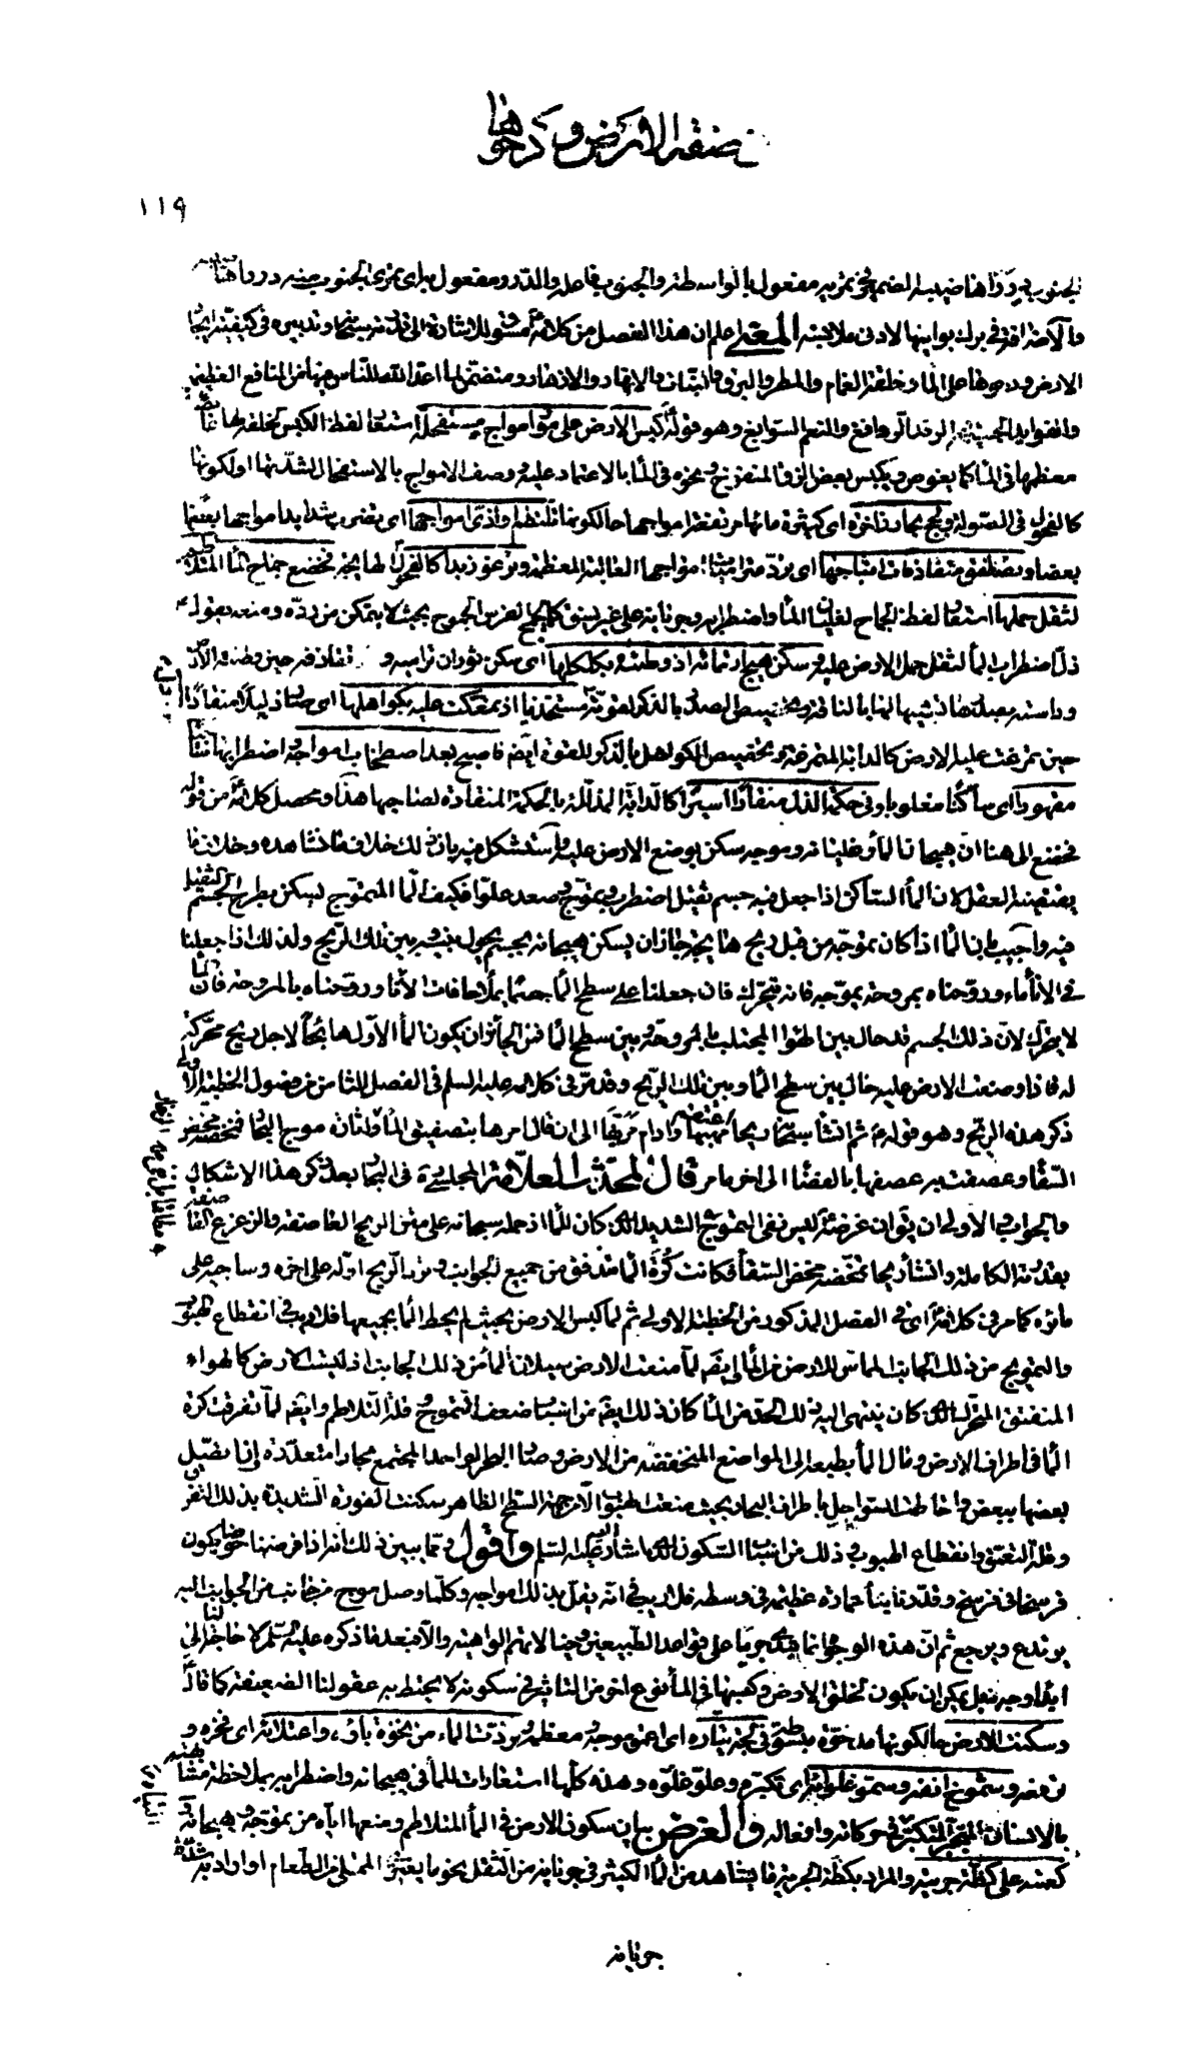 صفة الارض و دحوها
١١٩
الجنوب درورها ضبب الضمير تمريه مفعول بالواسطة والجنوب فاعله والدرر ومفعول به اى تمرى الجنوب منه درر اهاضيبه
والاضافة فى برك بوانيها لادنى ملابسة المعنى اعلم ان هذا الفصل من كلامه مسوق للاشارة الى قدرته سبحانه وتدبيره فى كيفية ايجاد
الارض ودحوها على الماء وخلقة الغمام والمطر والبرق والنبات والانهار والازهار ومتضمن لما اعد الله للناس فيها من المنافع العظيمة
والفوايد الرفد الروافغ والنعم السوابغ وهو قوله كبس الارض على مور امواج مستفحلة استعار لفظ الكبس لخلقه لها غائصا
معظمها فى الماء كما يغوص ويكبس بعض الزق المنفوخ ونحوه فى الماء بالاعتماد عليه ووصف الامواج بالاستفحال لشدتها او لكونها
كالفحول فى الصولة ولجج بحار زاخرة اى كثيرة مائها مرتفعة امواجها حالكونها تلتطم اواذى امواجها اى يضرب شدايد امواجها بعضها
بعضا وتصطفق متقاذفات اثباجها اى يرد مترامیات امواجها العالية المعظمة وترغو زبدا كالفحول لها يجه فخضع جماح الماء المتلاطم
لثقل حملها استعار لفظ الجماح لغليان الماء واضطرابه وجريانه على غير نسق كما يجمح الفرس الجموح بحيث لا يتمكن من رده ومنعه يقول
ذل اضطراب الماء لثقل حمل الارض عليه وسكن هيج ارتمائه اذ وطئته بكلكلها اى سكن ثوران تراميه و تقاذفه حين وطئته الارض
وداسته بصدرها تشبيها لها بالناقة وتخصيص الصدر بالذكر لقوته وذل مستخذيا اذ تمعكت عليه بكواهلها اى صار ذليلا منقادا
حين تمرغت عليه الارض كالدابة المتمرغة وتخصيص الكواهل بالذكر للقوة ايضا فاصبح بعد اصطخاب امواجه واضطرابها ساجيا
مقهورا اى ساكنا مغلوبا وفى حكمة الذل منقادا اسيرا كالدابة المذللة بالحكمة المنقادة لصاحبها هذا ومحصل كلامه من قوله
فخضع الى هنا ان هيجان الماء وغليانه وموجه سكن بوضع الارض عليه واستشكل فيه بان ذلك خلاف ما نشاهده وخلاف ما
يقتضيه العقل لان الماء الساكن اذا جعل فيه جسم ثقيل اضطرب وتموج وصعد علوا فكيف الماء المتموج ليسكن بطرح الجسم الثقيل
فيه واجيب بان الماء اذا كان تموجه من قبل ريح هايجة جاز ان يسكن هيجانه بجسم يحول بينه وبين تلك الريح ولذلك اذا جعلنا
فى الاناء ماء وروحناه بمروحة تموجه فانه يتحرك فان جعلنا على سطح الماء جسما يملأ حافات الاناء وروحناه بالمروحة فان الماء
لا يتحرك لان ذلك الجسم قد حال بين الهواء المجتلب بالمروحة وبين سطح الماء فمن الجائز ان يكون الماء الاول هايجا لاجل ريح محركة
له فاذا وضعت الارض عليه حال بين سطح الماء وبين تلك الريح وقد مر فى كلامه عليه السلم فى الفصل الثامن من فصول الخطبة الاولى
ذكر هذه الريح وهو قوله ثم انشأ سبحانه ريحا اعتقم مهبها وادام مربها الى ان قال امرها بتصفيق الماء الزخار واثارة موج البحار فمخضته مخض
السقاء وعصفت به عصفها بالفضاء الى اخر ما مر قال المحدث العلامة المجلسى ره فى البحار بعد ذكر هذا الاشكال
والجواب الاولى ان يقال ان غرضه ليس نفى التموج الشديد الذى كان للماء اذ حمله سبحانه على متن الريح العاصفة والزعزع القاصفة
بقدرته الكاملة وانشأ ريحا تمخضه مخض السقاء فكانت كرة الماء تتدفق من جميع الجوانب وترد الريح اوله على اخره وساجيه على
مائره كما مر فى كلامه اى فى الفصل المذكور من الخطبة الاولى ثم لما كبس الارض بحيث لم يحط الماء بجميعها فلا ريب فى انقطاع هبوب
والتمويج من ذلك الجانب المماس للارض من الماء وايضا لما منعت الارض سيلان الماء من ذلك الجانب اذ ليست الارض كالهواء
المنفتق المتحرك الذى كان ينتهى اليه ذلك الحد من الماء كان ذلك ايضا من اسباب ضعف التموج وقلة التلاطم وايضا لما تفرقت كرة
الماء فى اطراف الارض ومال الماء بطبعه الى المواضع المنخفضة من الارض وصار البحر الواحد المجتمع بحارا متعددة وان اتصل
بعضها ببعض واحاطت السواحل باطراف البحار بحيث منعت الهبوب الا من جهة السطح الظاهر سكنت الفورة الشديدة بذلك التفرق
وقلة التعمق وانقطاع الهبوب فذلك من اسباب السكون الذى اشار اليه عليه السلم واقول ومما يبين ذلك انه اذا فرضنا حوضا يكون
فرسخا فى فرسخ وقدرنا بناء عمارة عظيمة فى وسطه فلا ريب فى انه يقل بذلك امواجه وكلما وصل موج من جانب من الجوانب اليه
يرتدع ويرجع ثم ان هذه الوجوه انما تبدى جريا على قواعد الطبيعيين وخيالاتهم الواهية والا فبعد ما ذكره عليه السلم لا حاجة لنا الى
ابداء وجه بل يمكن ان يكون لخلق الارض وكبسها فى الماء نوع اخر من التأثير فى سكونه لا يحيط به عقولنا الضعيفة كما قال
وسكنت الارض حالكونها مدحوة مبسوطة فى لجة تياره اى اعمق موجه ومعظمه وردت الماء من نخوة بأوه واعتلائه اى فخره و
ترفعه وشموخ انفه وسمو غلوائه اى تكبره وعلو غلوه وهذه كلها استعارات للماء فى هيجانه واضطرابه بملاحظة مشابهته
بالانسان المتجبر المتكبر فى حركاته وافعاله والغرض بيان سكون الارض فى الماء المتلاطم ومنعها اياه من تموجه وهيجانه
كعمته على كظة جريته والمراد بكظة الجرية ما يشاهد من الماء الكثير فى جريانه من الثقل نحو ما يعترى الممتلى من الطعام او اراد به شدة
جريانه